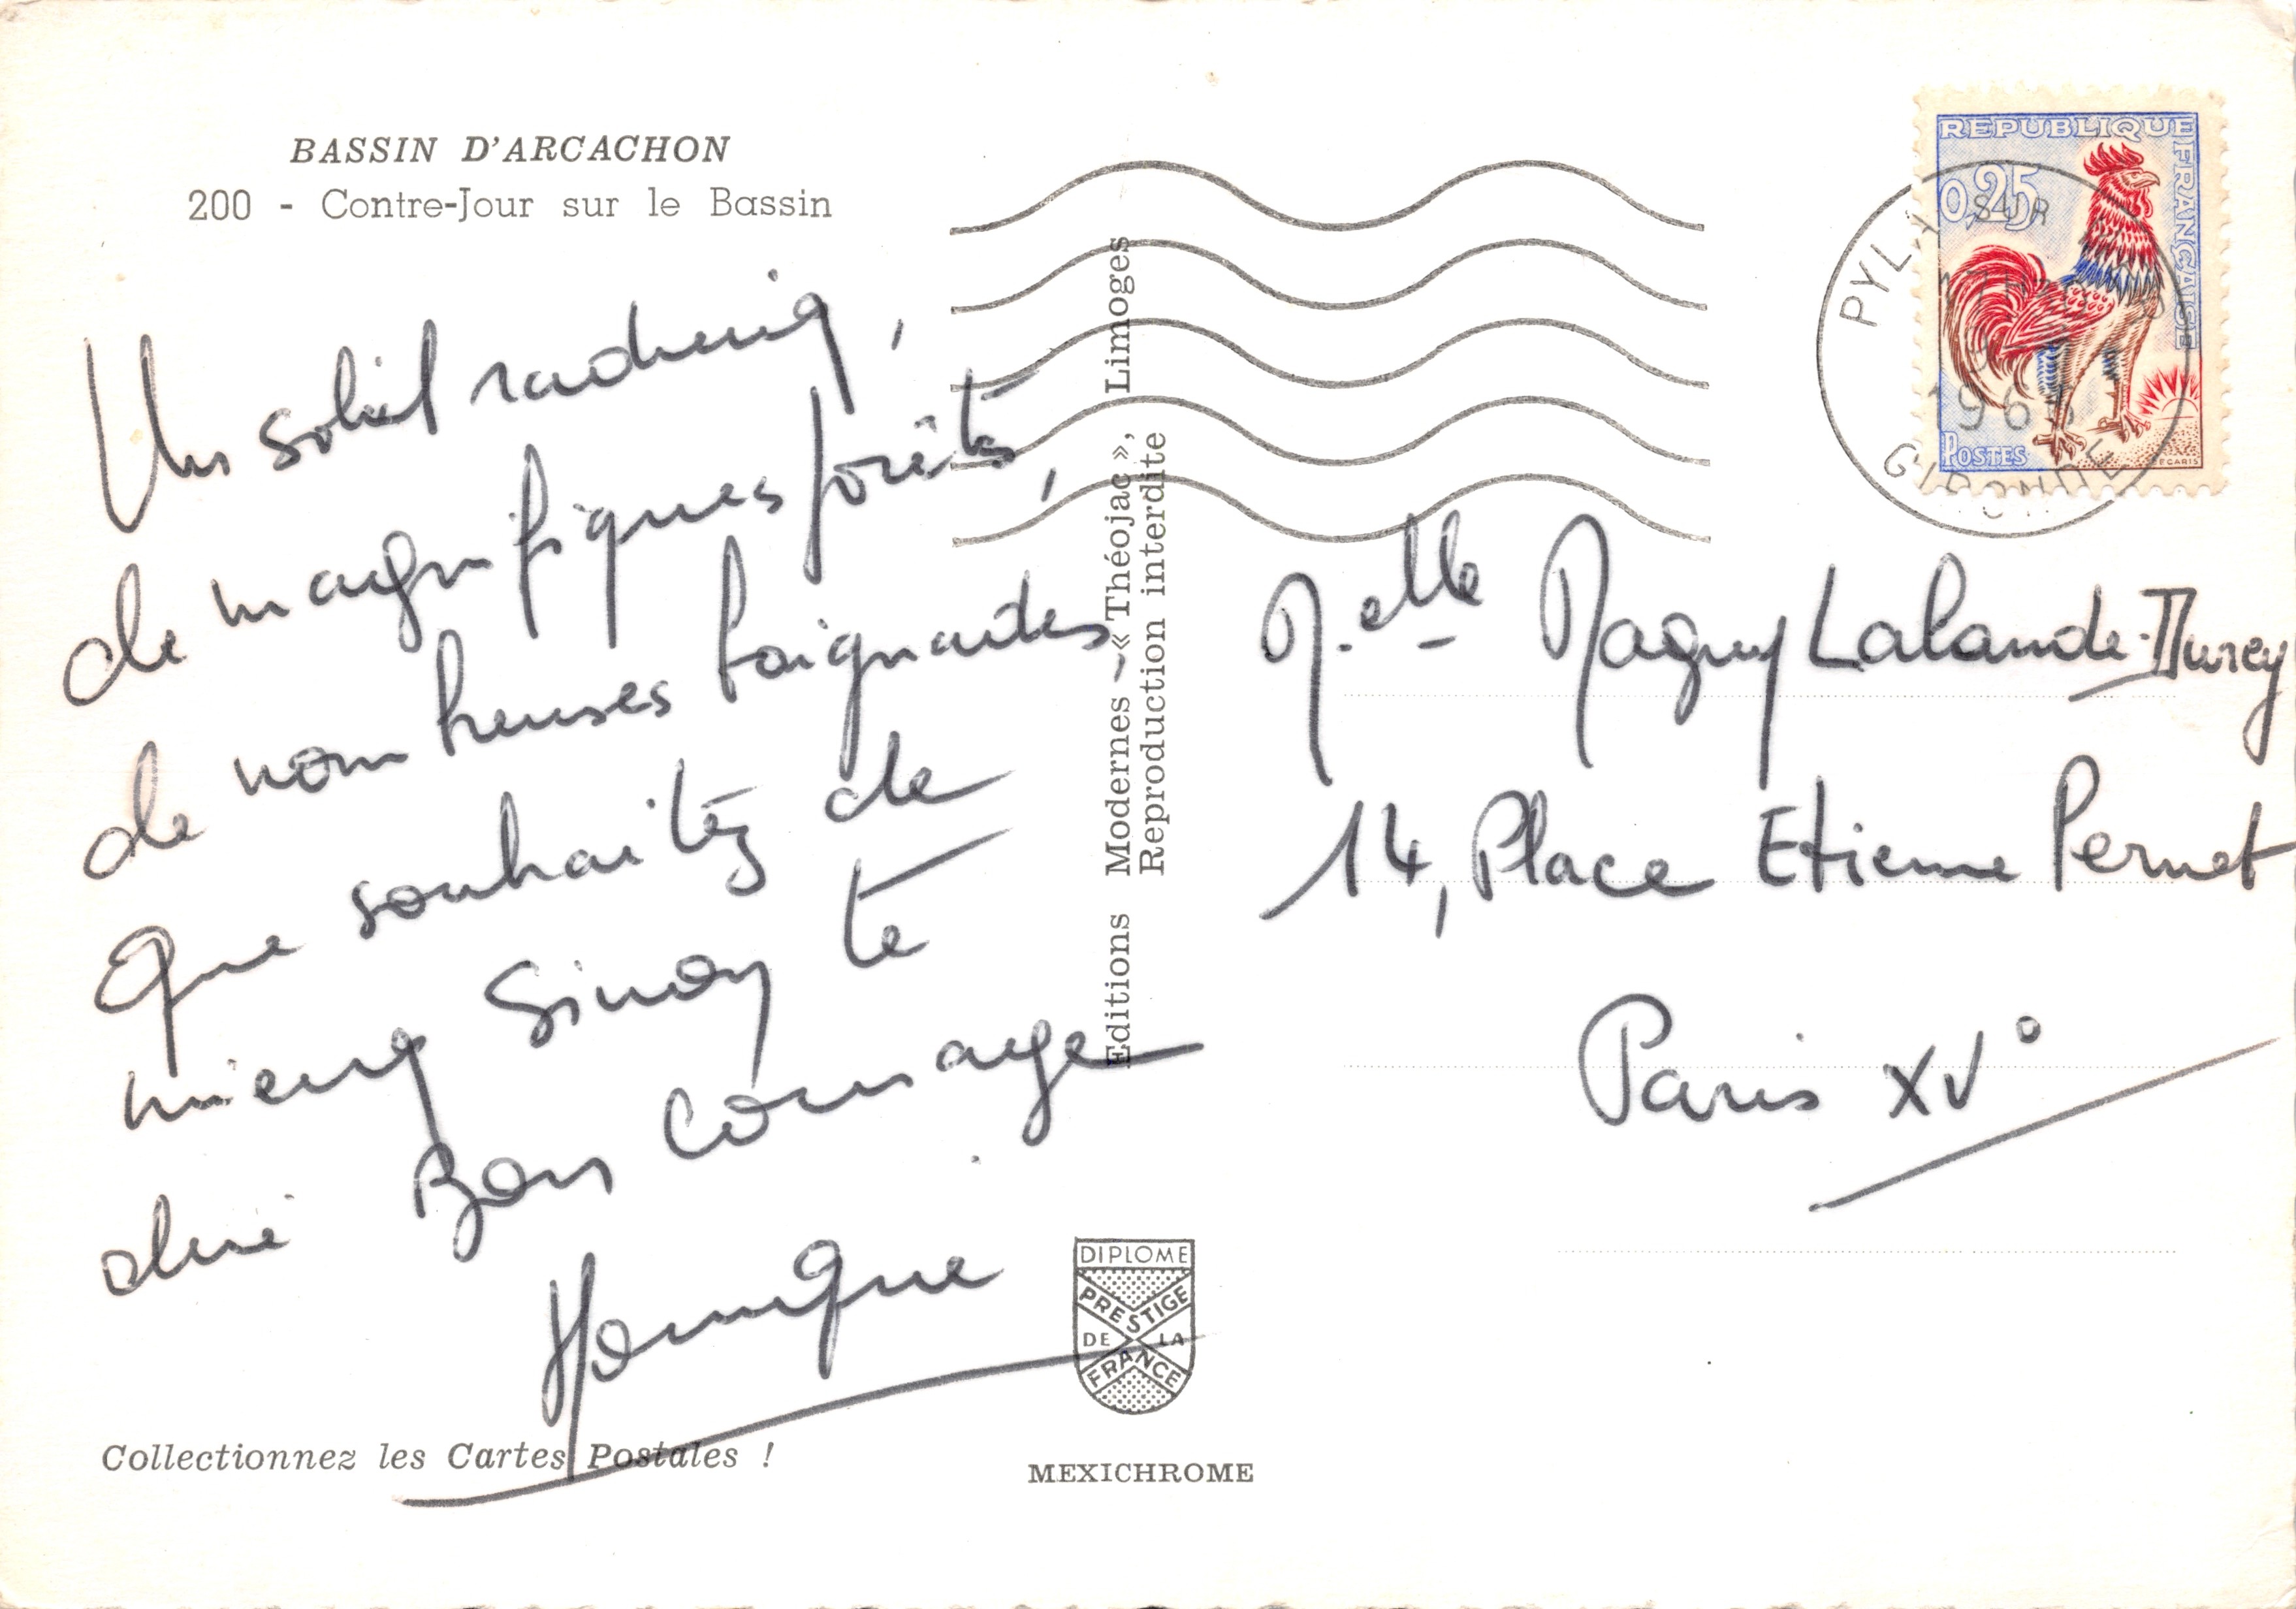 BASSIN D'ARCACHON
200 - Contre-Jour sur le Bassin
Un soleil radieux,
de magnifiques forêts,
de nombreuses baignades
que souhaitez de
mieux Sinon te
dire Bon Courage
Monique
Collectionnez les Cartes Postales !
Editions Modernes - « Théojac », Limoges
Reproduction interdite
DIPLOME
PRESTIGE
DE LA
FRANCE
MEXICHROME
REPUBLIQUE FRANÇAISE
0,25
POSTES
DECARIS
PYLA SUR
196
GIRONDE
M.elle Maguy Lalande-Durey
14, Place Etienne Pernet
Paris XV°